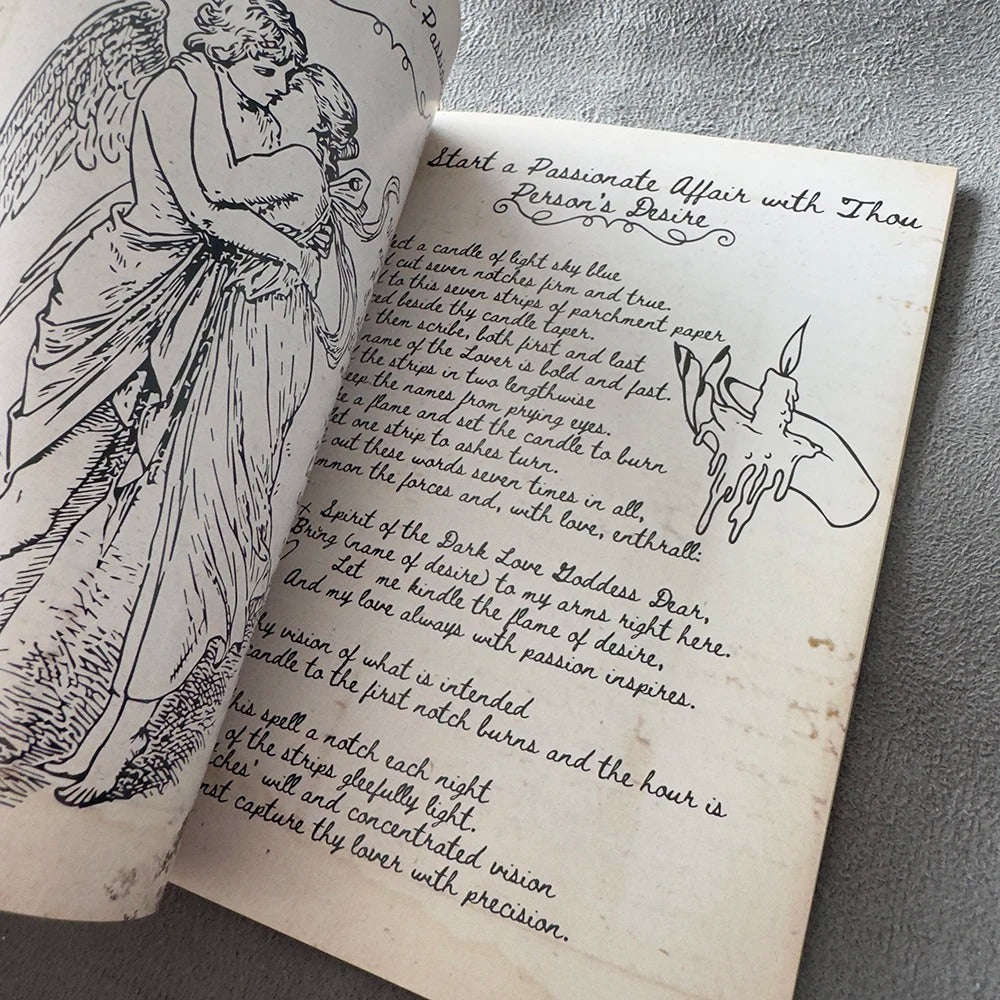 Start a Passionate Affair with Thou
Person's Desire
a candle of light sky blue
cut seven notches firm and true.
to this seven strips of parchment paper
beside thy candle taper.
them scribe, both first and last
name of the Lover is bold and fast.
the strips in two lengthwise
the names from prying eyes.
a flame and set the candle to burn
one strip to ashes turn.
out these words seven times in all,
the forces and, with love, enthrall:
Spirit of the Dark Love Goddess Dear,
Bring (name of desire) to my arms right here.
Let me kindle the flame of desire,
And my love always with passion inspires.
vision of what is intended
to the first notch burns and the hour is
spell a notch each night
of the strips gleefully light.
will and concentrated vision
capture thy lover with precision.